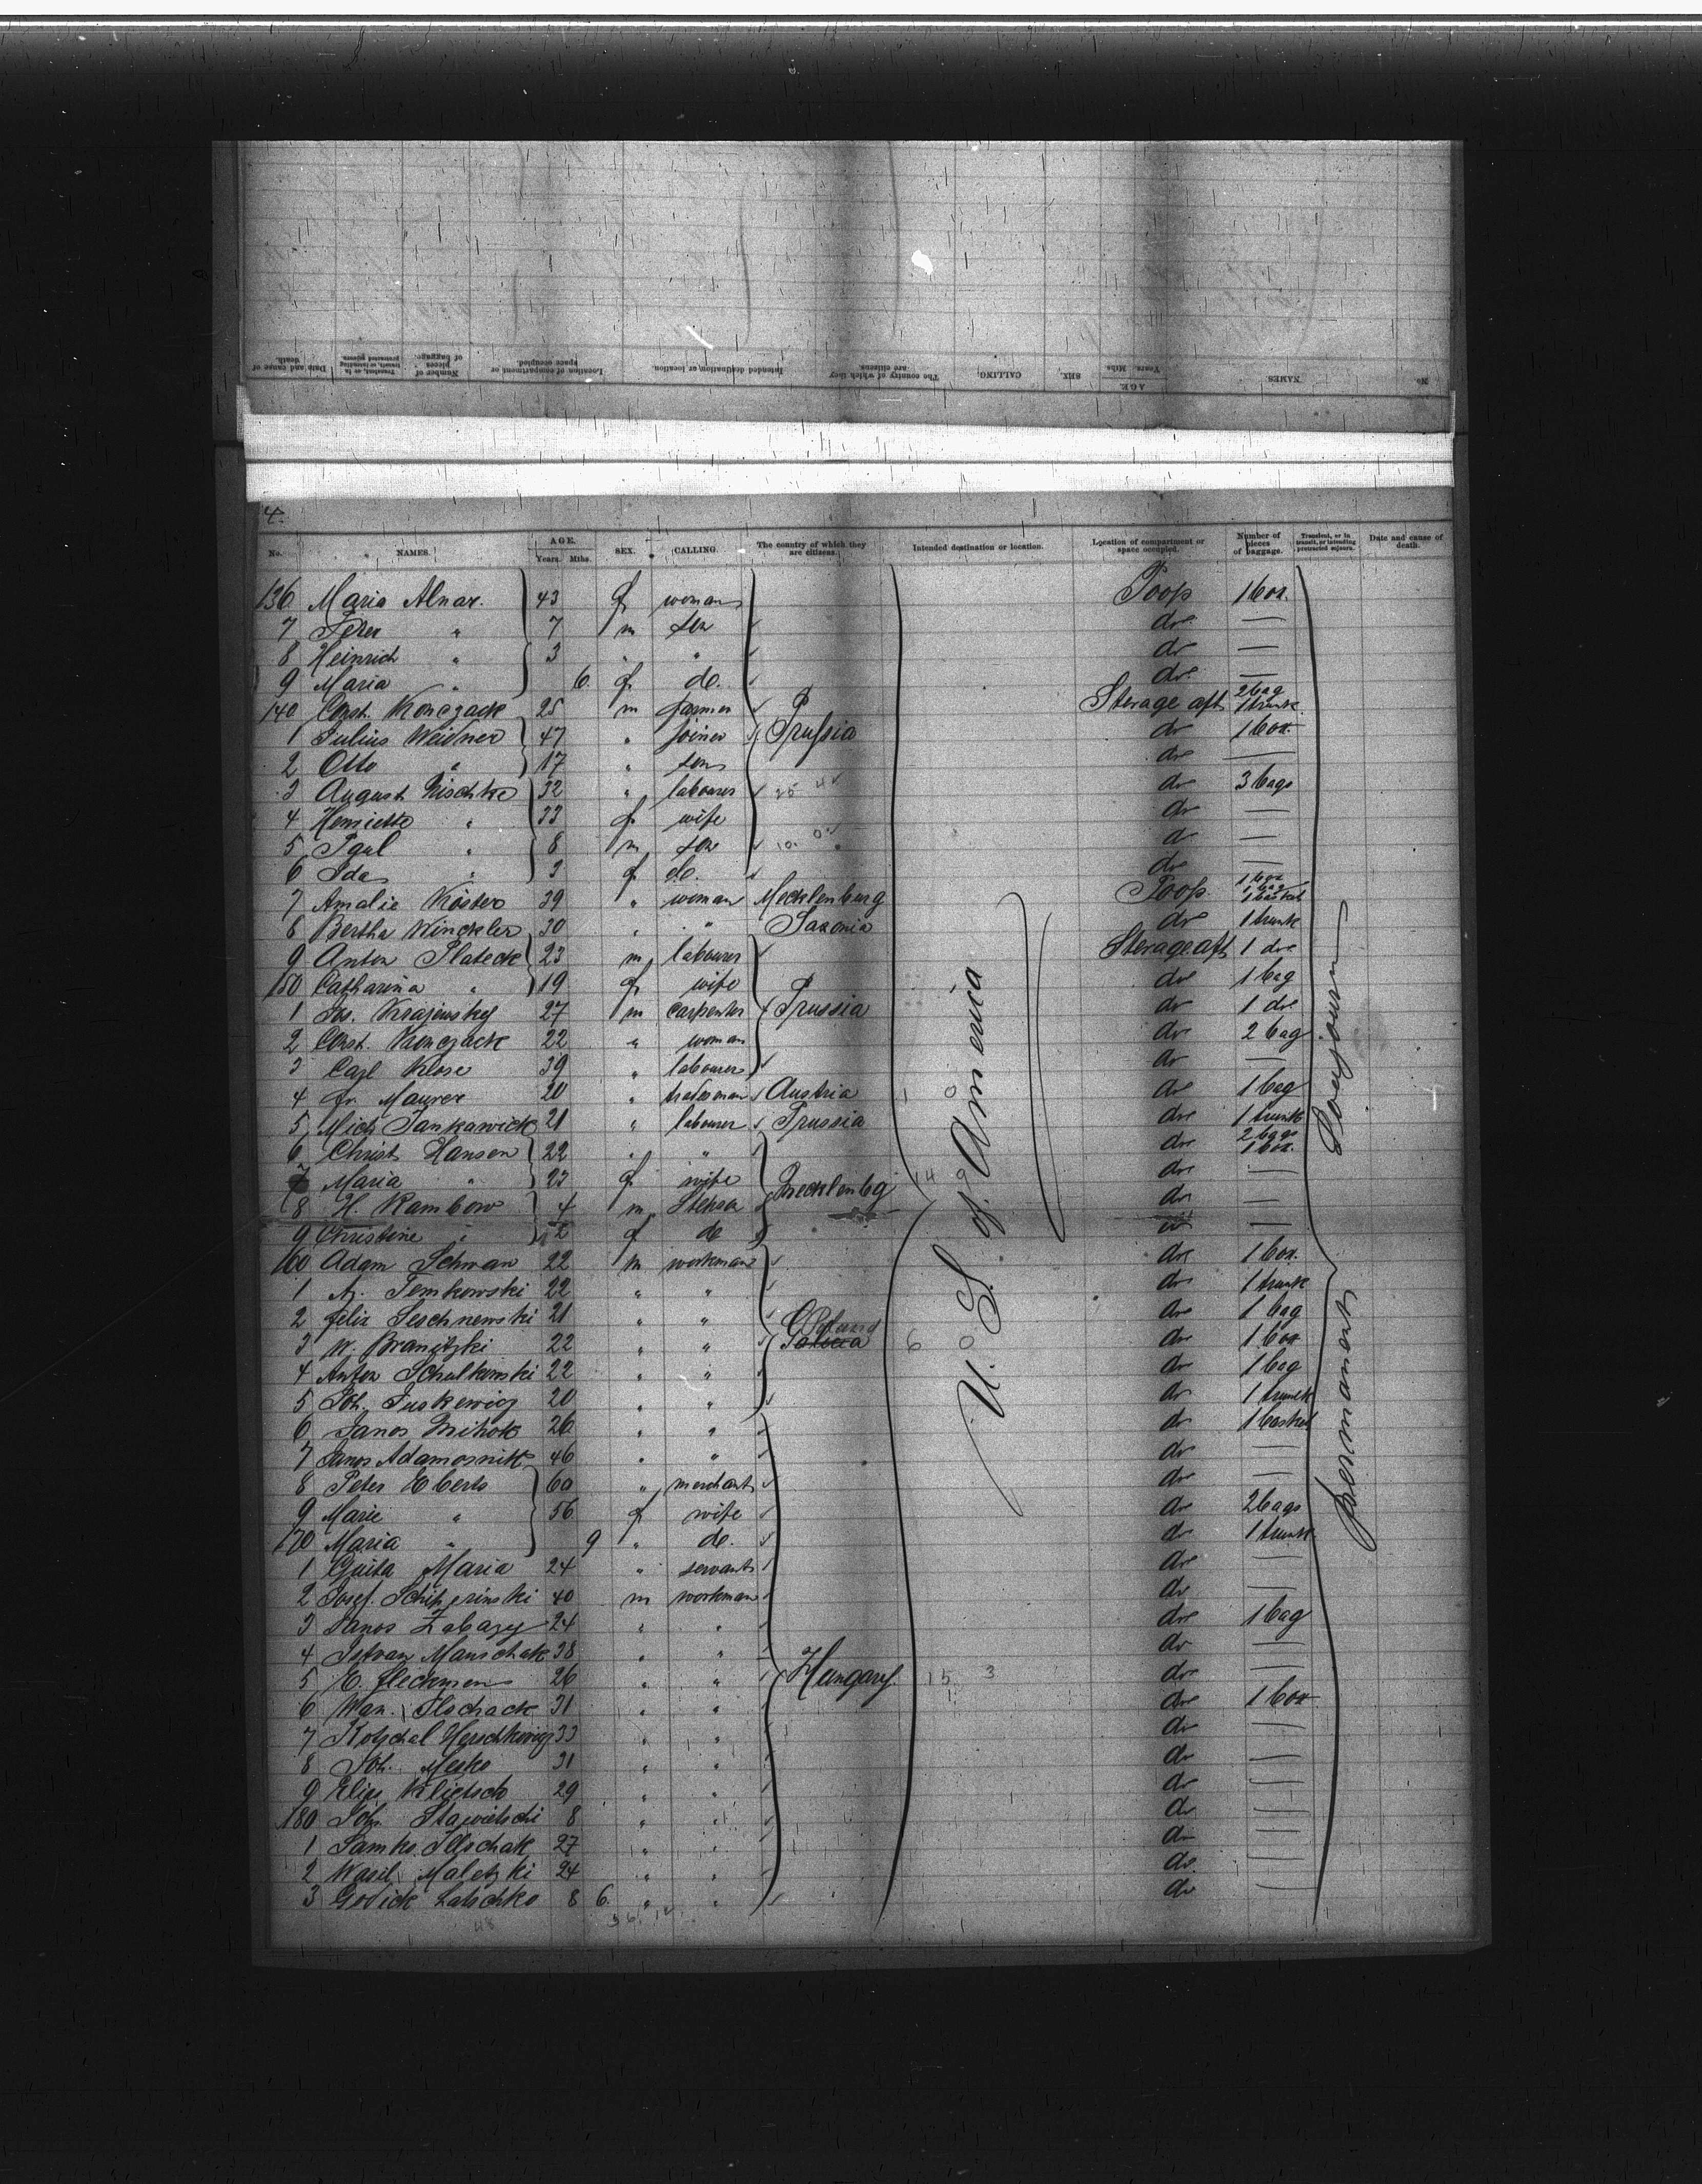 Date and cause of death.
Transient, or in transit, or intending protracted sojourn.
Number of pieces of baggage.
Location of compartment or space occupied.
Intended destination or location.
The country of which they are citizens.
CALLING.
SEX.
AGE. Years. Mths.
NAMES.
No.
4.
No. NAMES. AGE. Years. Mths. SEX. CALLING. The country of which they are citizens. Intended destination or location. Location of compartment or space occupied. Number of pieces of baggage. Transient, or in transit, or intending protracted sojourn. Date and cause of death.
136 Maria Alnar. 43 f woman Poop 1 box.
7 Peter " 7 m son do —
8 Heinrich " 3 " " do —
9 Maria " 6. f do. do —
140 Const. Konczack 25 m farmer Sterage aft 2 bag 1 trunk.
1 Julius Weidner 47 " joiner Prussia do 1 box.
2 Otto " 17 " son do —
3 August Nischke 32 " labourer do 3 bags
4 Henriette " 33 f wife do —
5 Paul " 8 m son do —
6 Ida " 3 f do. do —
7 Amalie Köster 39 " woman Mecklenburg Poop. 1 box 1 bag 1 basket
8 Bertha Winckler 30 " " Saxonia do 1 trunk
9 Anton Plateck 23 m labourer Sterage aft 1 do
150 Catharina " 19 f wife do 1 bag
1 Jos. Krajewsky 27 m carpenter Prussia do 1 do
2 Const. Konczack 22 " woman do 2 bag
3 Carl Klose 39 " labourer do —
4 Fr. Maurer 20 " tradesman Austria do 1 bag
5 Mich Jankawick 21 " labourer Prussia do 1 trunk
6 Christ Hansen 22 " " do 2 bags 1 box.
7 Maria " 23 f wife Mecklenbg do —
8 H. Rambow 4 m do —
9 Christine " f do do —
160 Adam Schwan 22 m workman do 1 box.
1 Temkowski 22 " " do 1 trunk
2 Felix Leschnewski 21 " " Poland do 1 bag
3 W. Branitzki 22 " " do 1 box
4 Anton Schulkowski 22 " " do 1 bag
5 Joh. Juskewicz 20 " " do 1 trunk
6 Janos Mihok 26 " " do 1 basket
7 Janos Adamosnik 46 " " do —
8 Peter Eberts 60 " merchant do —
9 Marie " 56 f wife do 2 bags
170 Maria " 9 " do. do 1 trunk
1 Guita Maria 24 " servant do —
2 Josef. Schiperinski 40 m workman do —
3 Janos Zabagy 24 " " do 1 bag
4 Istvan Manschak 38 " " do —
5 E. Fleckmen 26 " " Hungary. 15 3 do —
6 Wan. Ilschack 31 " " do 1 box
7 Kotschal Herschkowicz 33 " " do —
8 Joh. Mesko 31 " " do —
9 Elias Klietsch 29 " " do —
180 Joh. Stawietschi 8 " " do —
1 Samko Ilschak 27 " " do —
2 Wasil Maletzki 24 " " do. —
3 Godick Latschko 8 6. " " do —
U. S. of America
Sovyourn
permanent
48